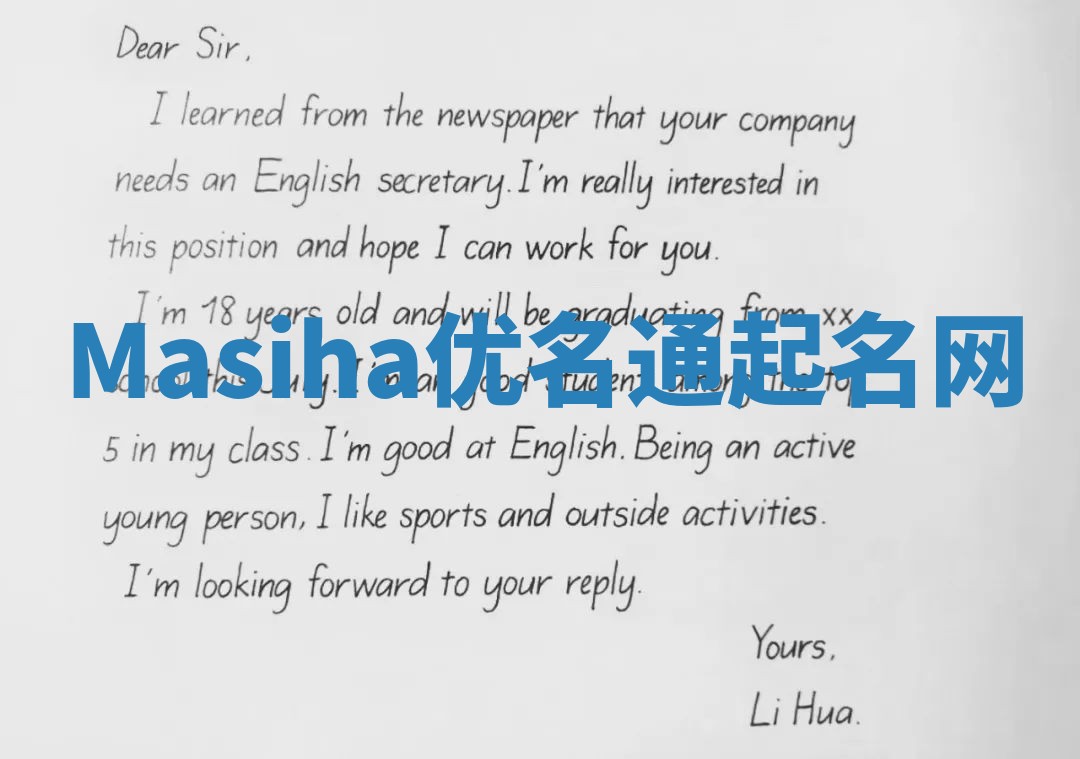 Dear Sir,
I learned from the newspaper that your company
needs an English secretary. I'm really interested in
this position and hope I can work for you.
I'm 18 years old and will be graduating from xx
Masiha优名通起名网
school this July. I'm a good student among the top
5 in my class. I'm good at English. Being an active
young person, I like sports and outside activities.
I'm looking forward to your reply.
Yours,
Li Hua.